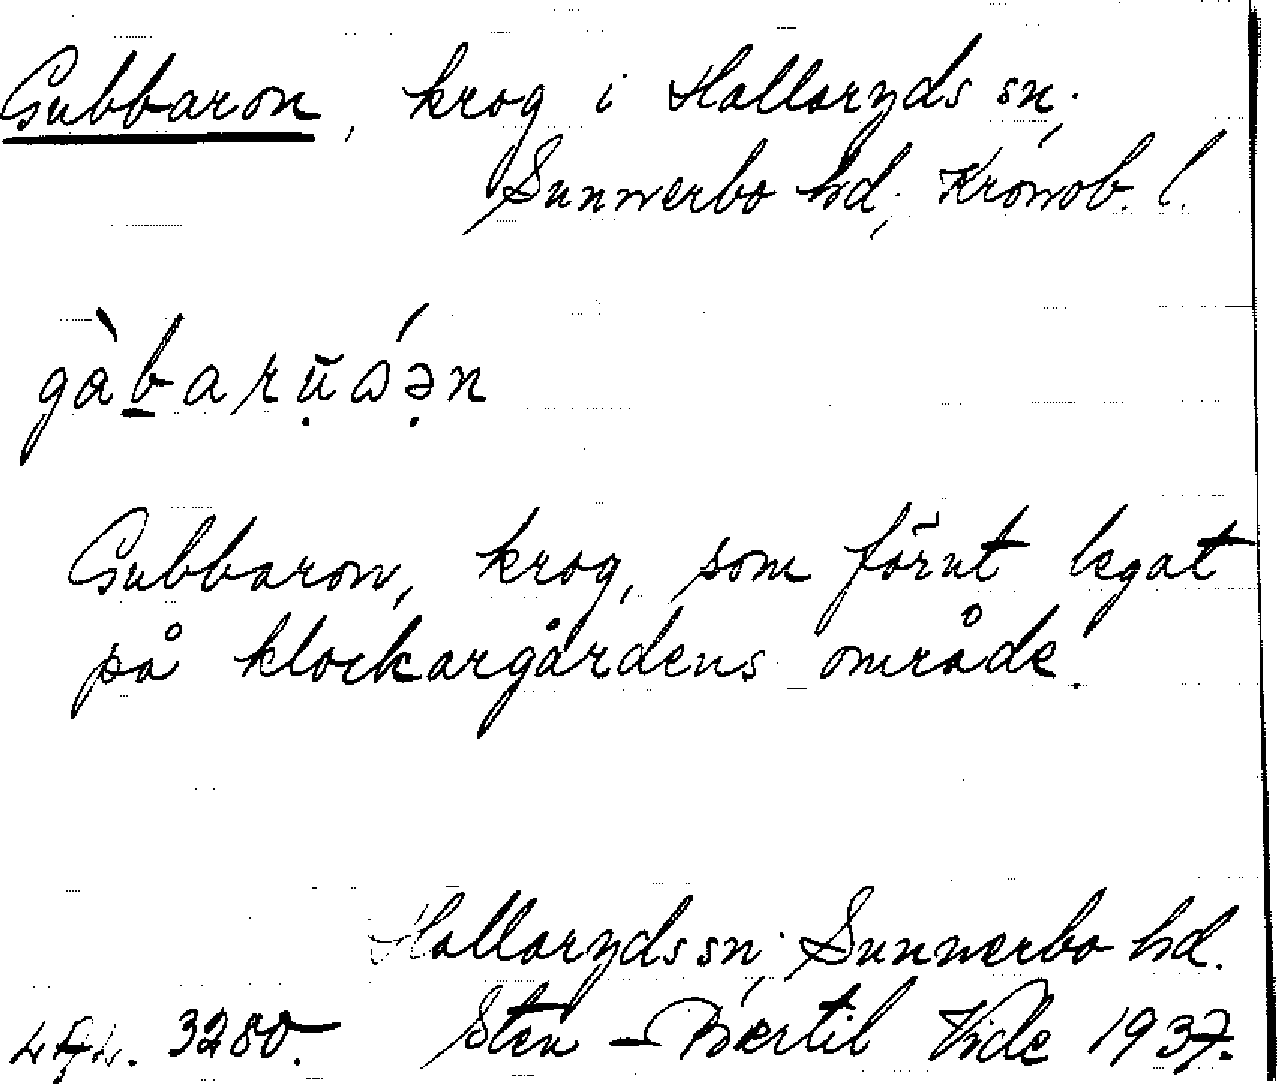 Gubbaron, krog i Hallaryds sn;
Sunnerbo hd; Kronob. l.
Gubbaron, krog, som förut legat
på klockargårdens område.
Hallaryds sn; Sunnerbo hd.
3280. Sten-Bertil Vide 1937.